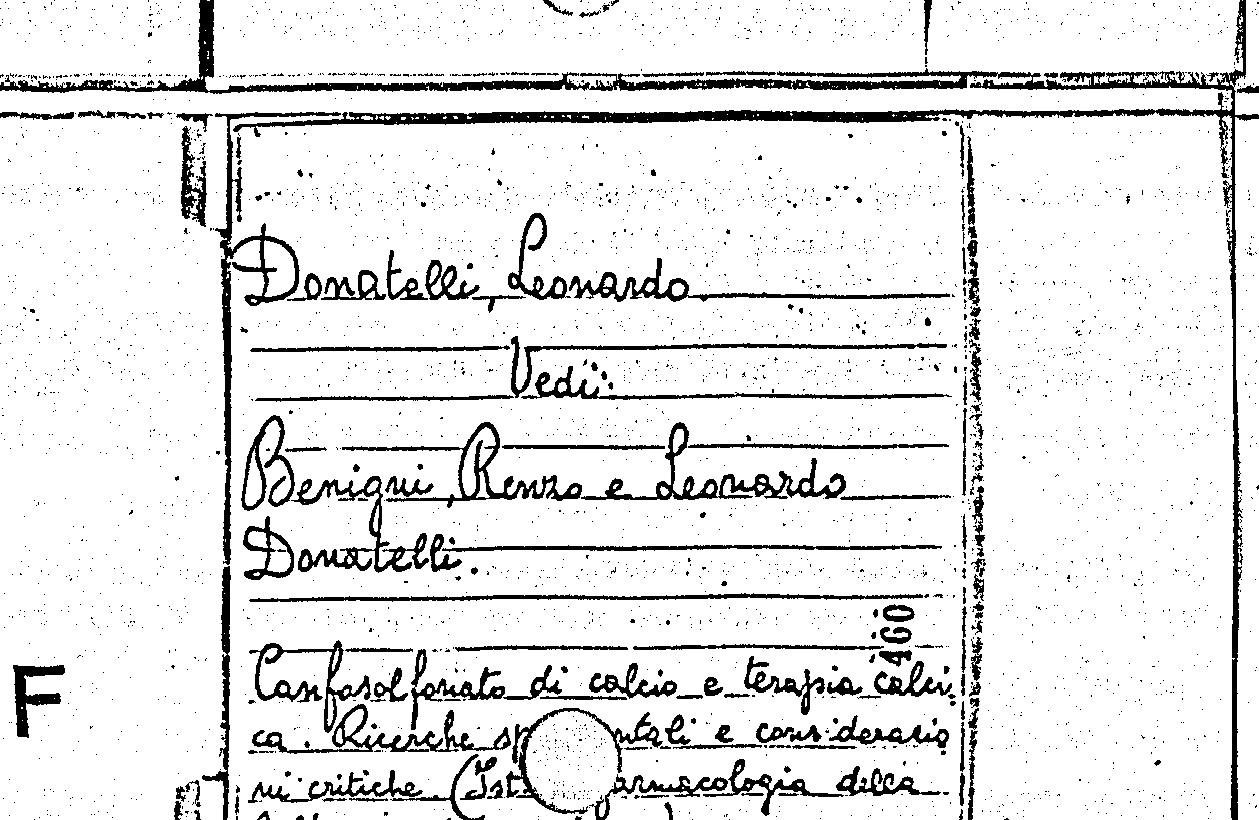 Donatelli, Leonardo.
Vedi:
Benigni, Renzo e Leonardo
Donatelli.
460
Canfosolfonato di calcio e terapia calci-
ca. Ricerche ntali e considerazio
ni critiche. (Ist. armacologia della
F